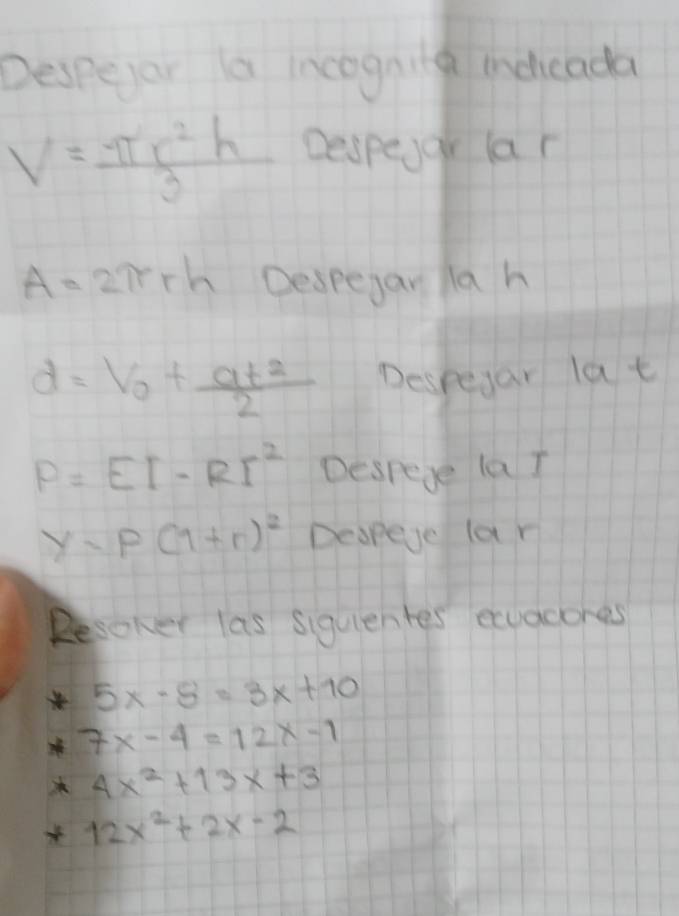 Despejar la incognita indicada
V = πr²h/3 Despejar la r
A = 2πrh Despejar la h
d = V₀ + at²/2 Despejar la t
P = EI - RI² Despeje la I
Y = P(1+r)² Despeje la r
Resolver las siguientes ecuaciones
* 5x - 8 = 3x + 10
* 7x - 4 = 12x - 1
* 4x² + 13x + 3
* 12x² + 2x - 2